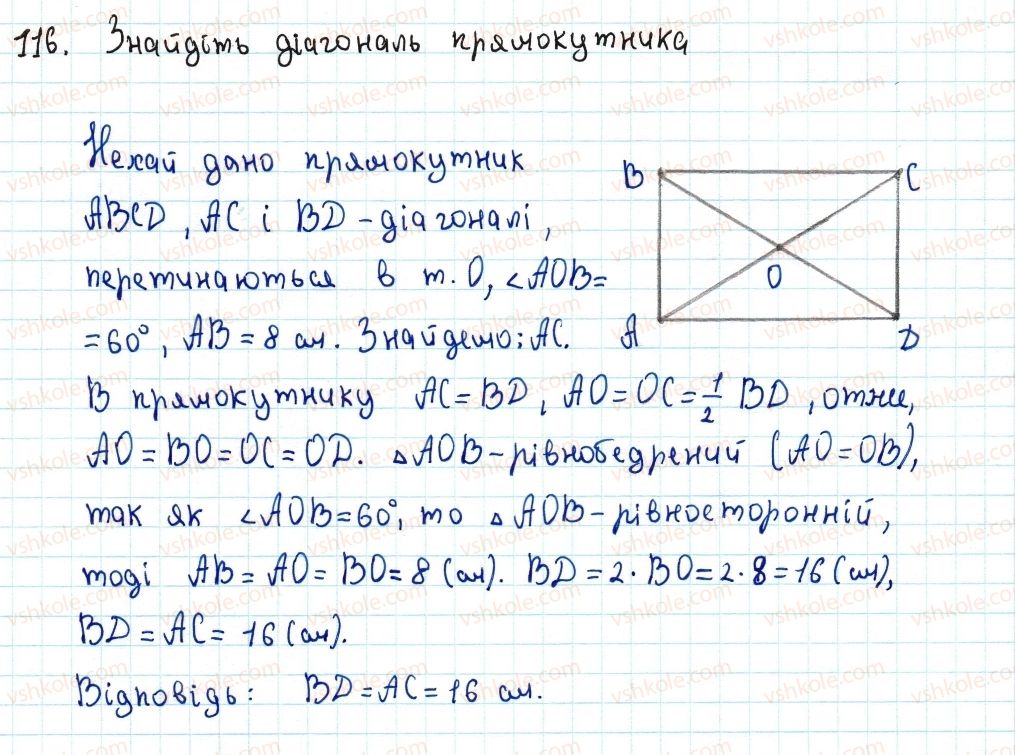 116. Знайдіть діагональ прямокутника
Нехай дано прямокутник
ABCD, AC і BD - діагоналі,
перетинаються в т. O, ∠AOB=
=60°, AB = 8 см. Знайдемо: AC.
B
C
O
A
D
В прямокутнику AC = BD, AO = OC = 1/2 BD, отже,
AO = BO = OC = OD. △AOB - рівнобедрений (AO = OB),
так як ∠AOB = 60°, то △AOB - рівносторонній,
тоді AB = AO = BO = 8 (см). BD = 2 · BO = 2 · 8 = 16 (см),
BD = AC = 16 (см).
Відповідь: BD = AC = 16 см.
vshkole.com